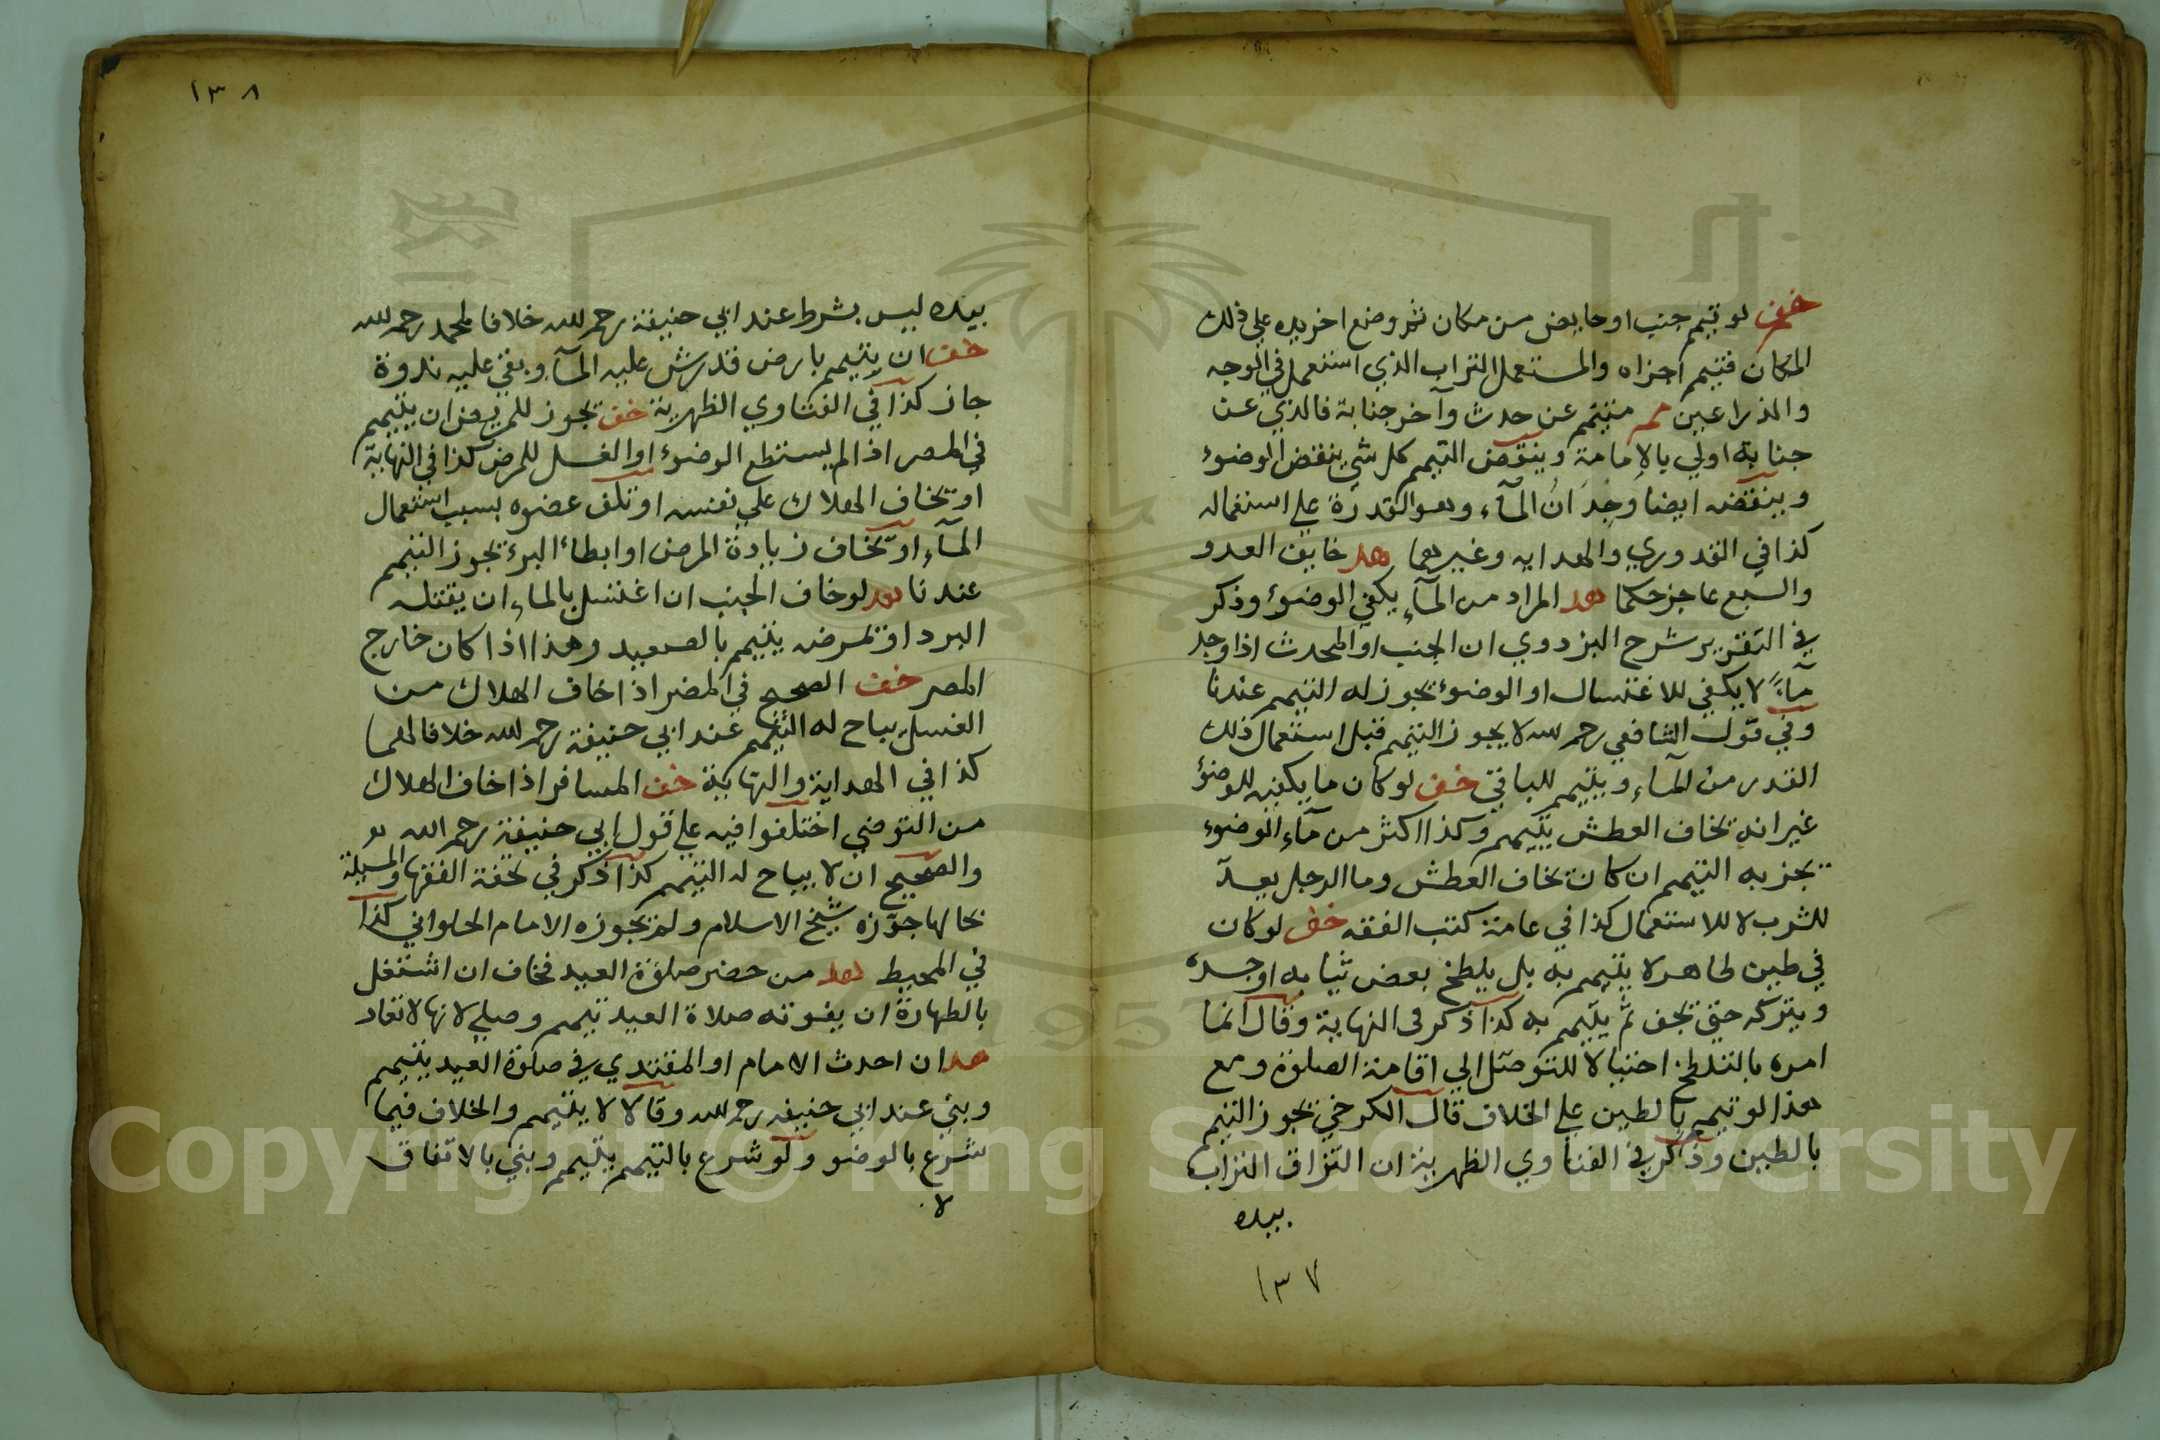 خف لو تيمم جنب او حايض من مكان ثم وضع اخر يده علي ذلك
المكان فتيمم اجزاه والمستعمل التراب الذي استعمل في الوجه
والذراعين مم متيمم عن حدث وآخر جنابة فالذي عن
جنابة اولي بالامامة وينقض التيمم كل شي ينقض الوضوء
وينقضه ايضا وجدان المآء وهو القدرة علي استعماله
كذا في القدوري والهدايه وغيرهما هد خايف العدو
والسبع عاجز حكما هد المراد من المآء يكفي الوضوء وذكر
في التقرير شرح البزدوي ان الجنب او المحدث اذا وجد
مآءً لا يكفي للاغتسال او الوضوء يجوز له التيمم عندنا
وفي قول الشافعي رحمه لله لا يجوز التيمم قبل استعمال ذلك
القدر من المآء ويتيمم للباقي خف لو كان ما يكفيه للوضوء
غير انه يخاف العطش يتيمم وكذا اكثر من مآء الوضوء
يجزيه التيمم ان كان يخاف العطش وما الرجل يعدّ
للشرب لا للاستعمال كذا في عامة كتب الفقه خف لو كان
في طين طاهر لا يتيمم به بل يلطخ بعض ثيابه او جسده
ويتركه حتي يجف ثم يتيمم به كذا ذكر في النهاية وقال انما
امره بالتلطخ احتيالا للتوصل الي اقامة الصلوة ومع
هذا لو تيمم بالطين علي الخلاف قال الكرخي يجوز التيمم
بالطين وذكر في الفتاوي الظهرية ان التزاق التراب
بيده
١٣٧
١٣٨
بيده ليس بشرط عند ابي حنيفة رحمه لله خلافا لمحمد رحمه لله
خف ان يتيمم بارض قد رش عليه المآء وبقي عليه ندوة
جاز كذا في الفتاوي الظهرية خف يجوز للمريض ان يتيمم
في المصر اذا لم يستطع الوضوء او الغسل للمرض كذا في النهاية
او يخاف الهلاك علي نفسه او تلف عضوه بسبب استعمال
المآء او يخاف زيادة المرض او ابطاء البرء يجوز التيمم
عندنا هد لو خاف الجنب ان اغتسل بالماء ان يقتله
البرد او يمرضه يتيمم بالصعيد وهذا اذا كان خارج
المصر خف الصحيح في المصر اذا خاف الهلاك من
الغسل يباح له التيمم عند ابي حنيفة رحمه لله خلافا لهما
كذا في الهداية والنهاية خف المسافر اذا خاف الهلاك
من التوضي اختلفوا فيه علي قول ابي حنيفة رحمه الله
والصحيح ان لا يباح له التيمم كذا ذكر في تحفة الفقها والمسيلة
بحالها جوزه شيخ الاسلام ولم يجوزه الامام الحلواني كذا
في المحيط هد من حضر صلوة العيد فخاف ان اشتغل
بالطهارة ان يفوته صلاة العيد تيمم وصلي لانها لا تعاد
هد ان احدث الامام او المقتدي في صلوة العيد يتيمم
وبني عند ابي حنيفه رحمه لله وقالا لا يتيمم والخلاف فيما
شرع بالوضو ولو شرع بالتيمم يتيمم وبني بالاتفاق
لا
Copyright © King Saud University
1957